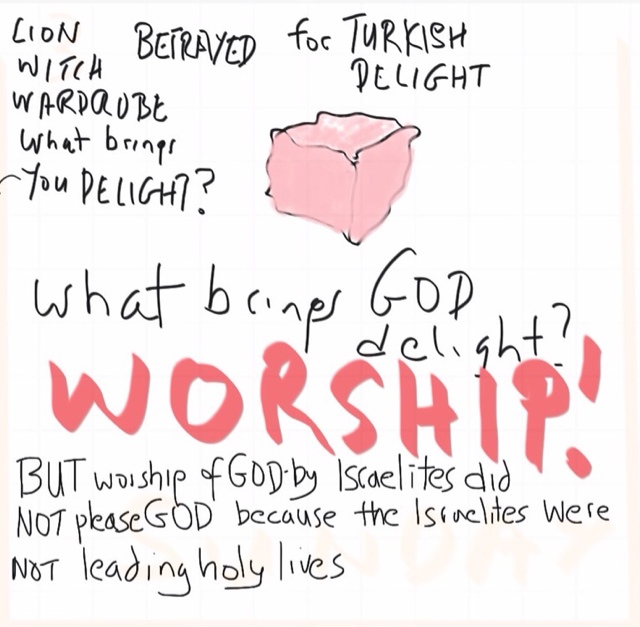 LION
WITCH
WARDROBE
What brings
You DELIGHT?
BETRAYED for TURKISH
DELIGHT
What brings GOD
delight?
WORSHIP!
BUT worship of GOD by Israelites did
NOT please GOD because the Israelites were
NOT leading holy lives